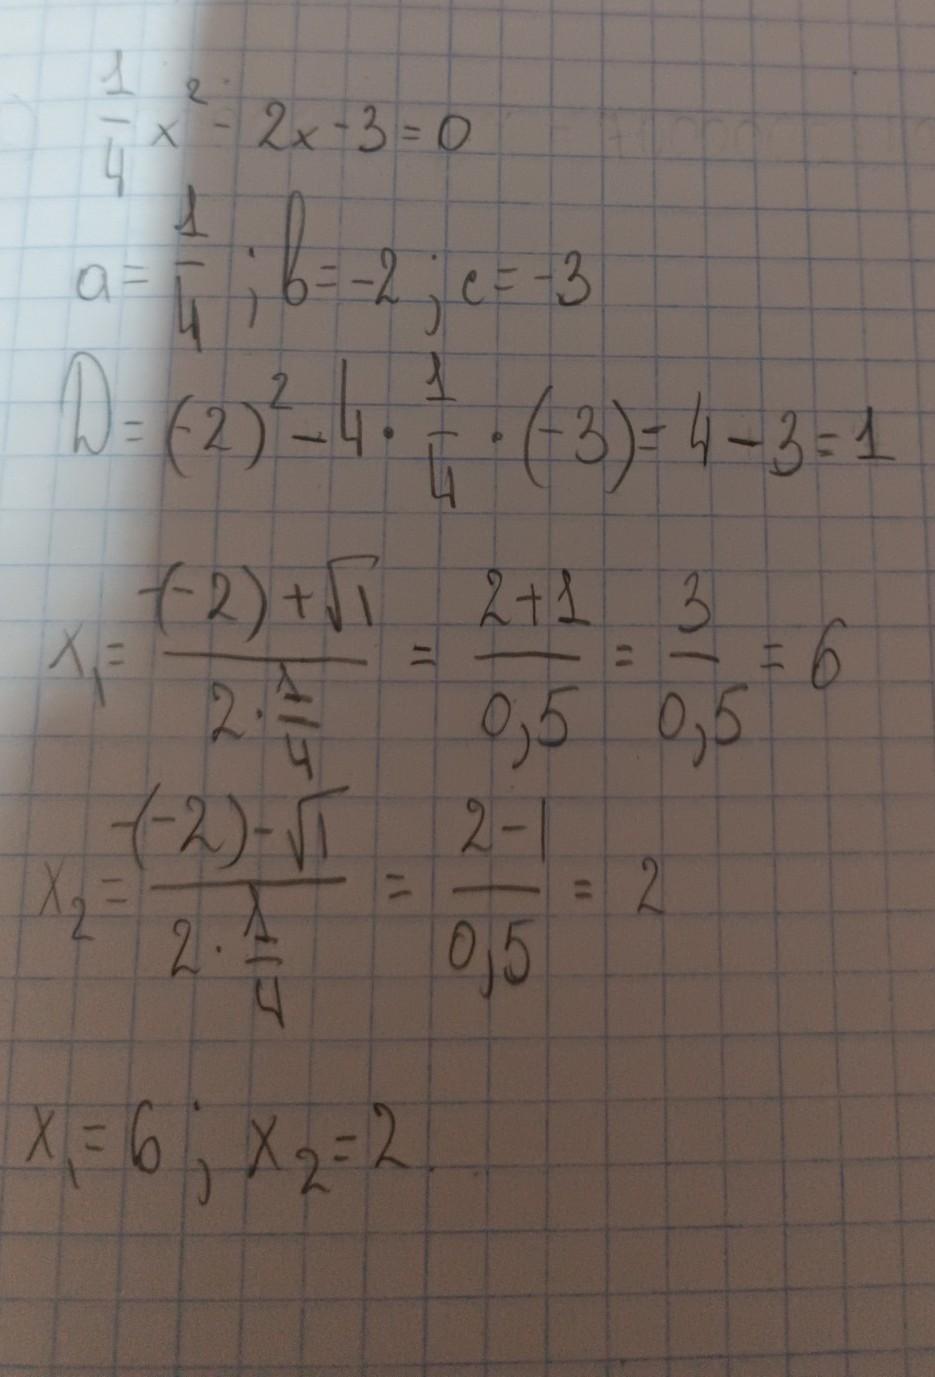 1/4 x² - 2x - 3 = 0
a = 1/4 ; b = -2 ; c = -3
D = (-2)² - 4 · 1/4 · (-3) = 4 - 3 = 1
x₁ = (-(-2) + √1)/(2 · 1/4) = (2+1)/(0,5) = 3/(0,5) = 6
x₂ = (-(-2) - √1)/(2 · 1/4) = (2-1)/(0,5) = 2
x₁ = 6 ; x₂ = 2.